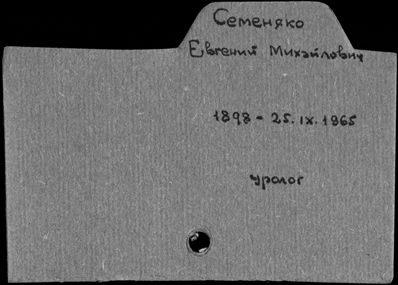 Семеняко
Евгений Михайлович
1898 - 25.IX.1965
уролог